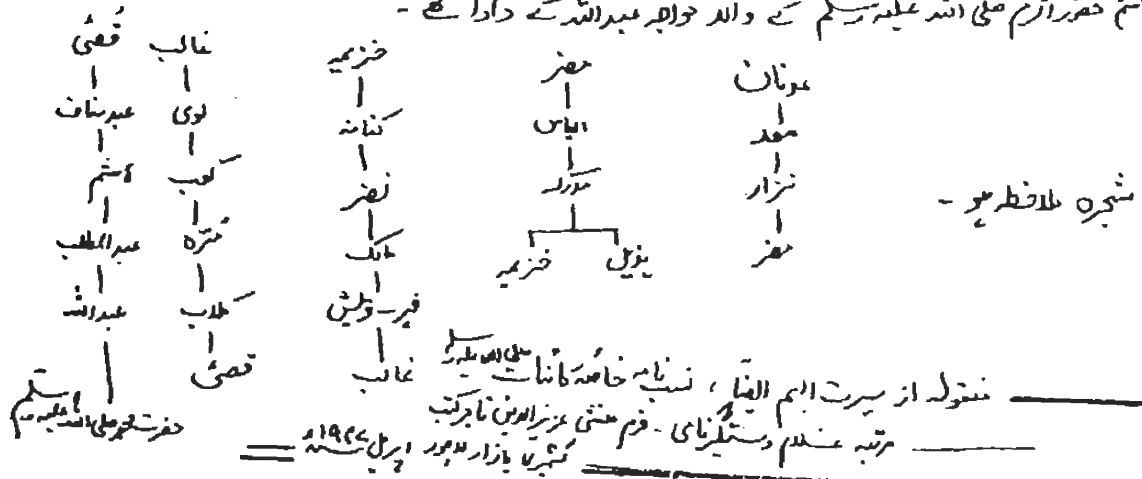 ہاشم حضور اکرم صلی اللہ علیہ وسلم کے والد خواجہ عبداللہ کے دادا تھے -
شجرہ ملاحظہ ہو -
عدنان
معد
نزار
مضر
مضر
الیاس
مدرکہ
ہذیل خزیمہ
خزیمہ
کنانہ
نضر
مالک
فہر - قریش
غالب
غالب
لوی
کعب
مُرّہ
کلاب
قصیٰ
قُصیٰ
عبد مناف
ہاشم
عبدالمطلب
عبداللہ
حضرت محمد صلی اللہ علیہ وسلم
منقولہ از سیرت ابہم الیضاً ، نسب نامہ خاصہ کائنات صلی اللہ علیہ وسلم
مرتبہ غلام دستگیر نامی - فرم منشی عزیز الدین تاجر کتب
کشمیری بازار لاہور اپریل سنہ